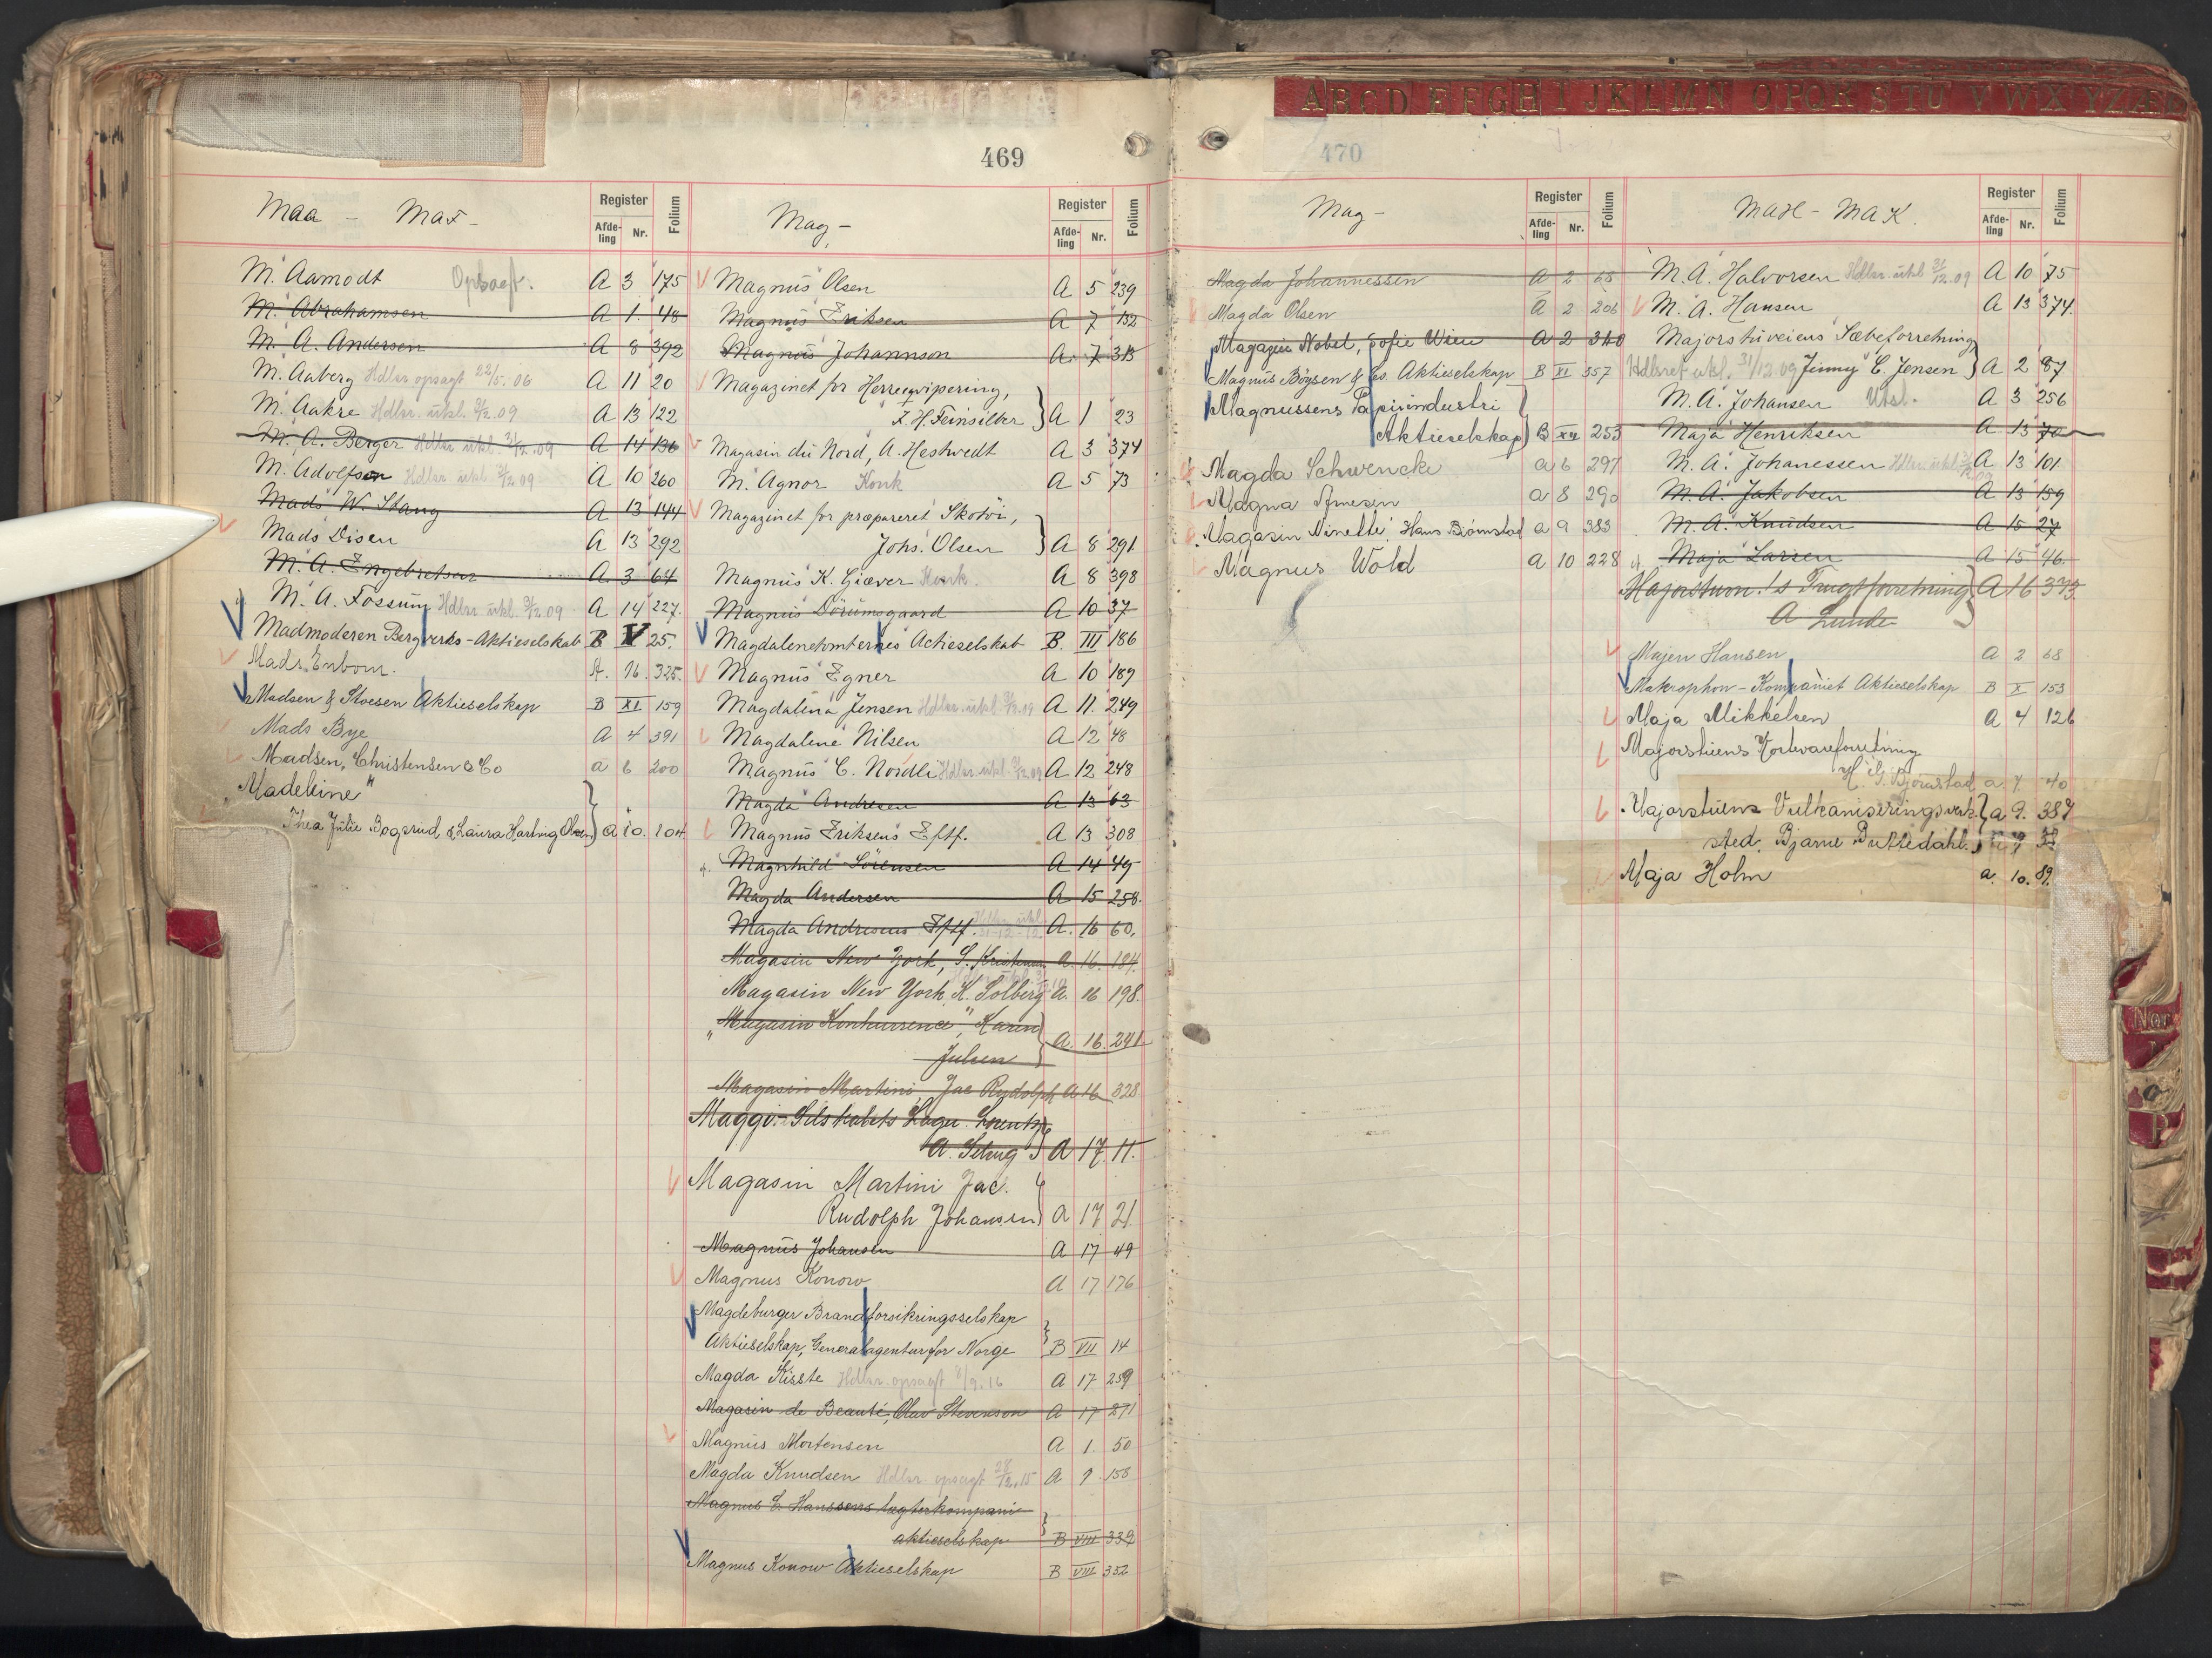 469
Maa - Maf -
Register
Afde-ling Nr. Folium
M. Aamodt Opsagt. A 3 175
M. Abrahamsen A 1. 48
M. A. Andersen A 8 392
M. Aaberg Hdlsr opsagt 22/5.06 A 11 20
M. Aakre Hdlsr. ukl. 31/12.09 A 13 122
M. A. Berger Hdlsr. ukl. 31/12.09 A 14 136
M. Adolfsen Hdlsr. ukl. 31/12.09 A 10 260
Mads W. Stang A 13 144
Mads Disen A 13 292
M. A. Engebretsen A. 3 64
M. A. Fossum Hdlsr. ukl. 31/12.09 A 14 227.
Madmoderen Bergverks-Aktieselskab B V 25.
Mads Enbom. A. 16. 325.
Madsen & Stoesen Aktieselskap B XI 159
Mads Bye A 4 391
Madsen, Christensen & Co a 6 200
"Madeleine"
Thea Julie Bogerud & Laura Hartvig Olsen a 10. 104
Mag -
Register
Afde-ling Nr. Folium
Magnus Olsen A 5 239
Magnus Eriksen A 7 132
Magnus Johannson A. 7 313
Magazinet for Herreequipering,
F. H. Feinsilber A 1 23
Magasin du Nord, A. Hestvedt A 3 374
M. Agnor Konk A 5 73
Magazinet for præpareret Skotöi,
Johs. Olsen A 8 291
Magnus K. Giæver Konk. A 8 398
Magnus Dörumsgaard A 10 37
Magdalenetomternes Actieselskab B. III 186
Magnus Egner A 10 189
Magdalena Jensen Hdlsr. ukl. 31/12.09 A 11. 249
Magdalene Nilsen A 12 48
Magnus C. Nordli Hdlsr. ukl. 31/12.09 A 12 248
Magda Andresen A 13 63
Magnus Eriksens Eftf. A 13 308
Magnhild Sörensen A 14 49
Magda Andersen A 15 258.
Magda Andresens Eftf. Hdlsr. ukl. A. 16 60.
Magasin New York, S. Kristensen A. 16. 184.
Magasin New York, K. Solberg A. 16 198.
"Magasin Konkurrence", Karen
Julsen A. 16. 241
Magasin Martini, Jac Rudolph A 16 328
Maggi-Selskabets Lager Lorentz
A. 17 11.
Magasin Martini Jac.
Rudolph Johansen A 17 21
Magnus Johansen A 17 49
Magnus Konow A 17 176
Magdeburger Brandforsikringsselskap
Aktieselskap, Generalagentur for Norge B VII 14
Magda Kisste Hdlsr. opsagt 6/9.16 A 17 259
Magasin de Beauté, Olav Stevenson A 17 271
Magnus Mortensen A 1. 50
Magda Knudsen Hdlsr. opsagt 28/12.15 A 1. 158
Magnus E. Hanssens lægterkompani
aktieselskap B VIII 339
Magnus Konow Aktieselskap B VIII 352
A B C D E F G H I J K L M N O P Q R S T U V W X Y Z Æ
470
Mag -
Register
Afde-ling Nr. Folium
Magda Johannessen A 2 65
Magda Olsen A 2 206
Magazin Nobel, Sofie Wien A 2 340
Magnus Böysen & Co. Aktieselskap B XI 357
Magnussens Papirindustri
Aktieselskap B XII 253
Magda Schwencke a 6 297
Magna Arnesen a 8 290
Magasin Ninette, Hans Björnstad a 9 383
Magnus Wold a 10 228
Mah - Mak.
Register
Afde-ling Nr. Folium
M. A. Halvorsen Hdlsr. ukl 31/12.09 A 10 75
M. A. Hansen A 13 374.
Majorstuveiens Sæbeforretning,
Hdlsret ukl. 31/12.09 Jenny C. Jensen A 2 87
M. A. Johansen Utsl. A 3 256
Maja Henriksen A 13 70
M. A. Johanessen Hdlsr. ukl. A 13 101
M. A. Jakobsen A 13 159
M. A. Knudsen A 15 27
Maja Larsen A 15 46.
Majorstuen's Frugtforretning A 16 373
A Lunde
Majen Hansen A 2 68
Makrophon-Kompaniet Aktieselskap B X 153
Maja Mikkelsen A 4 126
Majorstuens Kortevareforretning
H. G. Bjørnstad a. 7 40
Majorstuens Vulkaniseringsverk- a 9. 387
sted. Bjarne Buttedahl.
Maja Holm a. 10. 89.
Nor
P